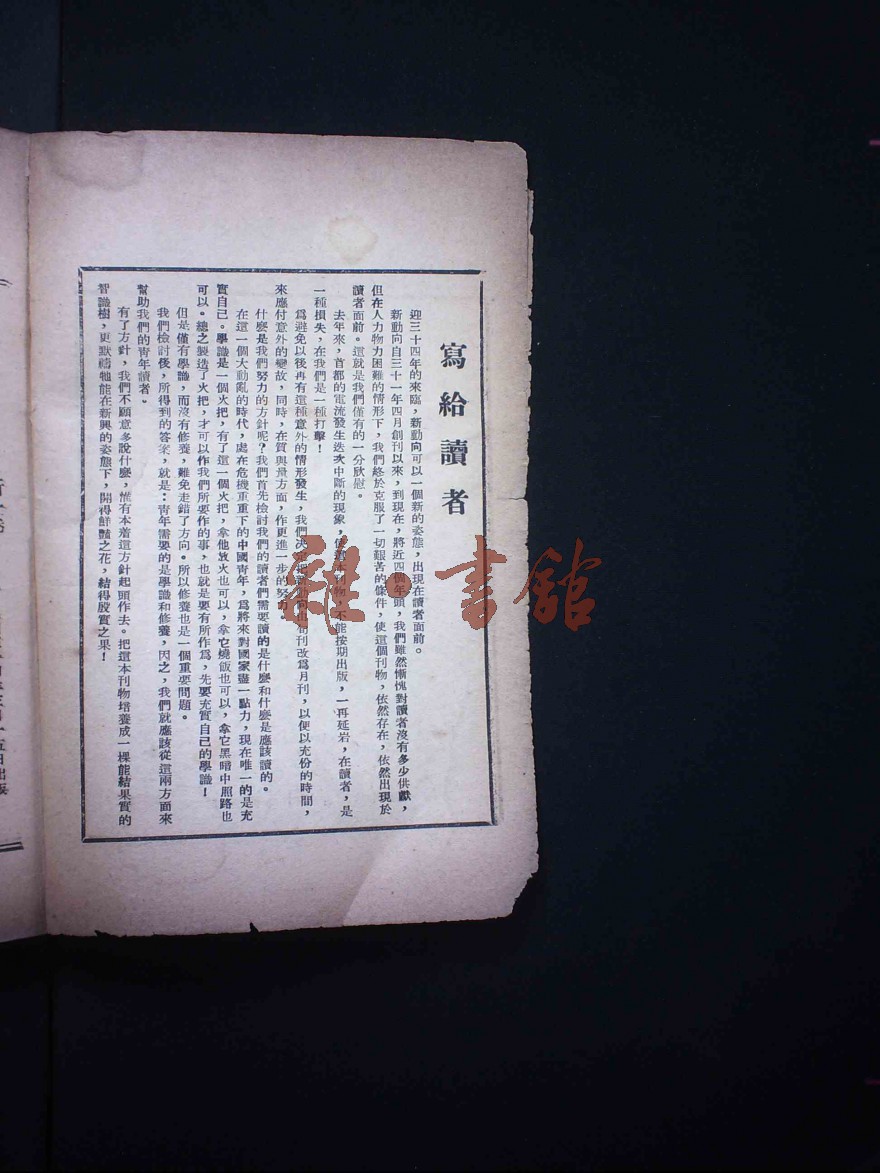 寫給讀者
迎三十四年的來臨，新動向可以一個新的姿態，出現在讀者面前。
新動向自三十一年四月創刊以來，到現在，將近四個年頭，我們雖然慚愧對讀者沒有多少供獻，
但在人力物力困難的情形下，我們終於克服了一切艱苦的條件，使這個刊物，依然存在，依然出現於
讀者面前。這就是我們僅有的一分欣慰。
去年來，首都的電流發生迭次中斷的現象，使本刊物，不能按期出版，一再延岩，在讀者，是
一種損失，在我們是一種打擊！
爲避免以後再有這種意外的情形發生，我們決定把新動向由旬刊改爲月刊，以便以充份的時間，
來應付意外的變故，同時，在質與量方面，作更進一步的努力
什麼是我們努力的方針呢？我們首先檢討我們的讀者們需要讀的是什麼和什麼是應該讀的。
在這一個大動亂的時代，處在危機重重下的中國青年，爲將來對國家盡一點力，現在唯一的是充
實自己。學識是一個火把，有了這一個火把，拿他放火也可以，拿它燒飯也可以，拿它黑暗中照路也
可以。總之製造了火把，才可以作我們所要作的事，也就是要有所作爲，先要充實自己的學識！
但是僅有學識，而沒有修養，難免走錯了方向。所以修養也是一個重要問題。
我們檢討後，所得到的答案，就是：青年需要的是學識和修養，因之，我們就應該從這兩方面來
幫助我們的青年讀者。
有了方針，我們不願意多說什麼，惟有本着這方針起頭作去。把這本刊物培養成一棵能結果實的
智識樹，更默禱牠能在新興的姿態下，開得鮮豔之花，結得殷實之果！
雜·書館